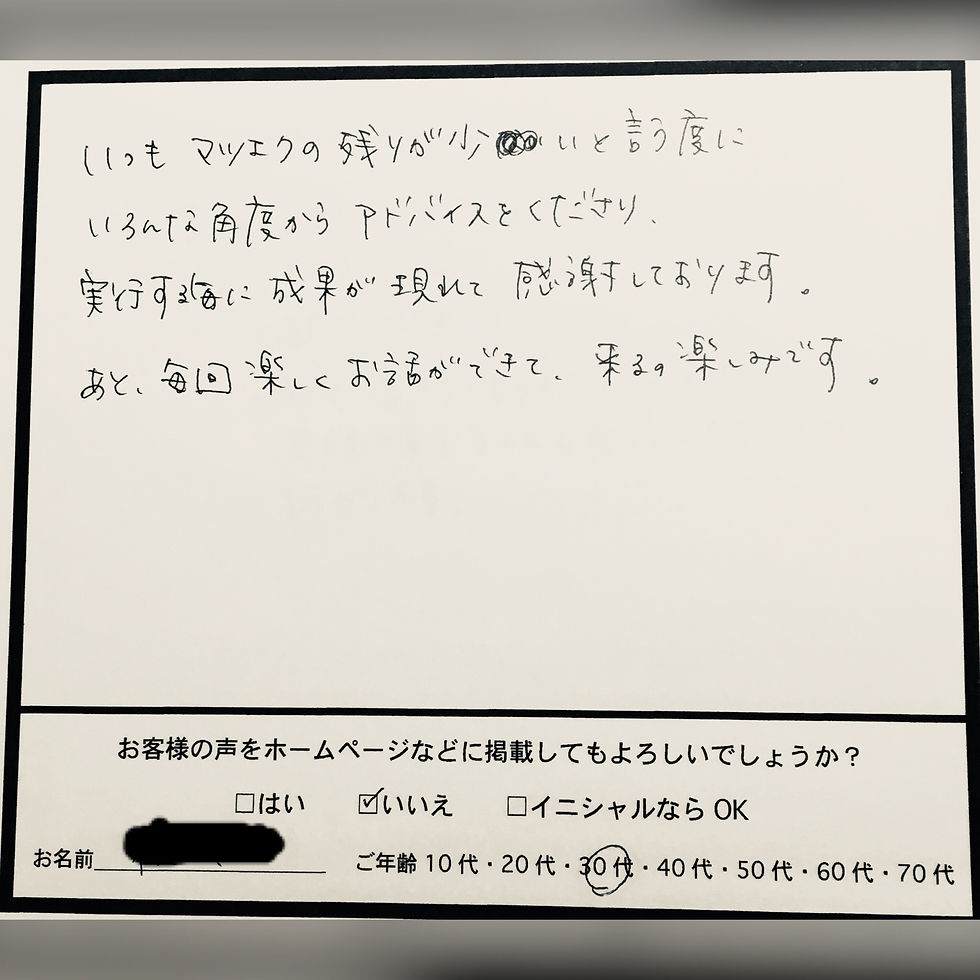 いつも マツエクの 残りが少いと言う度に
いろんな角度から アドバイスをくださり、
実行する毎に 成果が 現れて 感謝しております。
あと、毎回 楽しく お話ができて、来るの楽しみです。
お客様の声をホームページなどに掲載してもよろしいでしょうか？
□はい ☑いいえ □イニシャルなら OK
お名前 ご年齢 10代・20代・30代・40代・50代・60代・70代